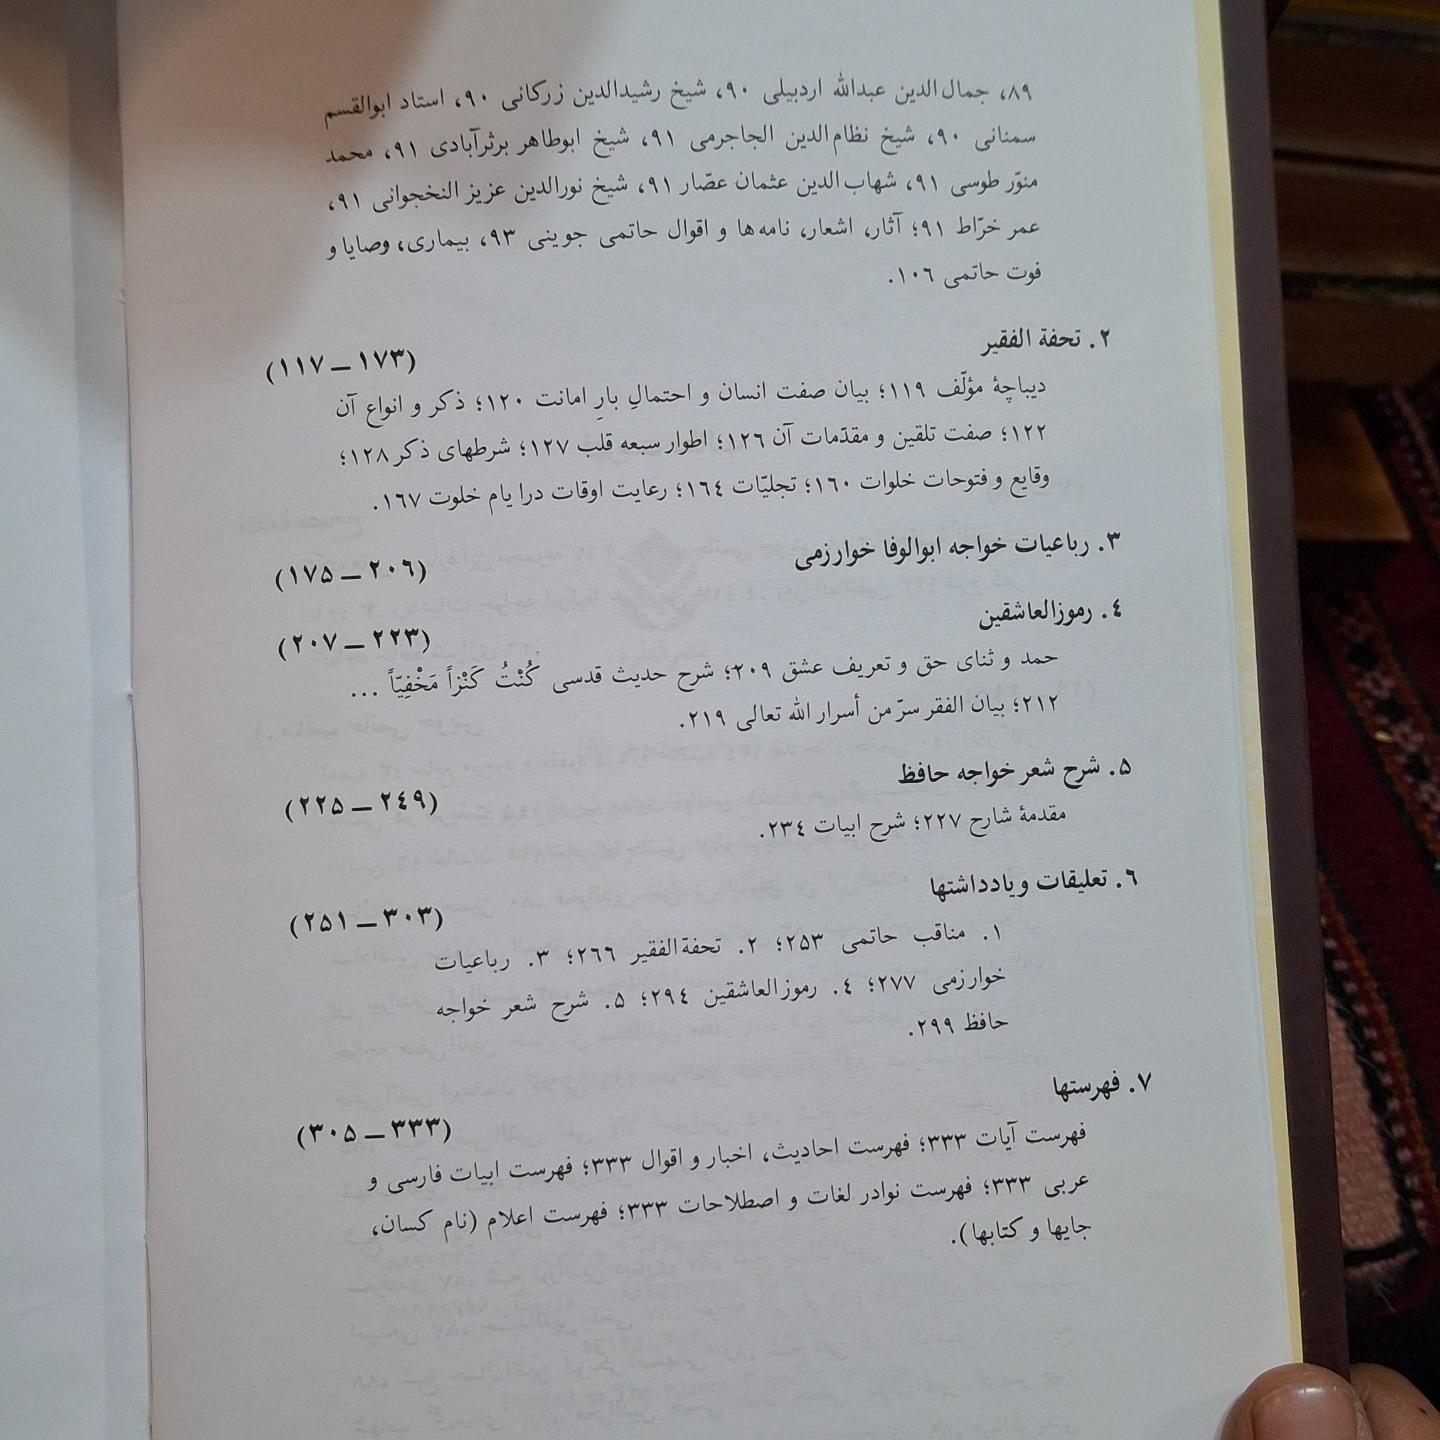 ۸۹، جمال‌الدین عبدالله اردبیلی ۹۰، شیخ رشیدالدین زرکانی ۹۰، استاد ابوالقسم
سمنانی ۹۰، شیخ نظام‌الدین الجاجرمی ۹۱، شیخ ابوطاهر برثرآبادی ۹۱، محمد
منوّر طوسی ۹۱، شهاب‌الدین عثمان عصّار ۹۱، شیخ نورالدین عزیز النخجوانی ۹۱،
عمر خرّاط ۹۱؛ آثار، اشعار، نامه‌ها و اقوال حاتمی جوینی ۹۳، بیماری، وصایا و
فوت حاتمی ۱۰۶.
۲. تحفة الفقیر
(۱۱۷ – ۱۷۳)
دیباچهٔ مؤلّف ۱۱۹؛ بیان صفت انسان و احتمالِ بارِ امانت ۱۲۰؛ ذکر و انواع آن
۱۲۲؛ صفت تلقین و مقدّمات آن ۱۲۶؛ اطوار سبعه قلب ۱۲۷؛ شرطهای ذکر ۱۲۸؛
وقایع و فتوحات خلوات ۱۶۰؛ تجلیّات ۱۶۴؛ رعایت اوقات درا یام خلوت ۱۶۷.
۳. رباعیات خواجه ابوالوفا خوارزمی
(۱۷۵ – ۲۰۶)
۴. رموزالعاشقین
(۲۰۷ – ۲۲۳)
حمد و ثنای حق و تعریف عشق ۲۰۹؛ شرح حدیث قدسی کُنْتُ کَنْزاً مَخْفِیّاً ...
۲۱۲؛ بیان الفقر سرّ من أسرار الله تعالی ۲۱۹.
۵. شرح شعر خواجه حافظ
(۲۲۵ – ۲۴۹)
مقدمهٔ شارح ۲۲۷؛ شرح ابیات ۲۳۴.
۶. تعلیقات و یادداشتها
(۲۵۱ – ۳۰۳)
۱. مناقب حاتمی ۲۵۳؛ ۲. تحفةالفقیر ۲۶۶؛ ۳. رباعیات
خوارزمی ۲۷۷؛ ۴. رموزالعاشقین ۲۹۴؛ ۵. شرح شعر خواجه
حافظ ۲۹۹.
۷. فهرستها
(۳۰۵ – ۳۳۳)
فهرست آیات ۳۳۳؛ فهرست احادیث، اخبار و اقوال ۳۳۳؛ فهرست ابیات فارسی و
عربی ۳۳۳؛ فهرست نوادر لغات و اصطلاحات ۳۳۳؛ فهرست اعلام (نام کسان،
جایها و کتابها).